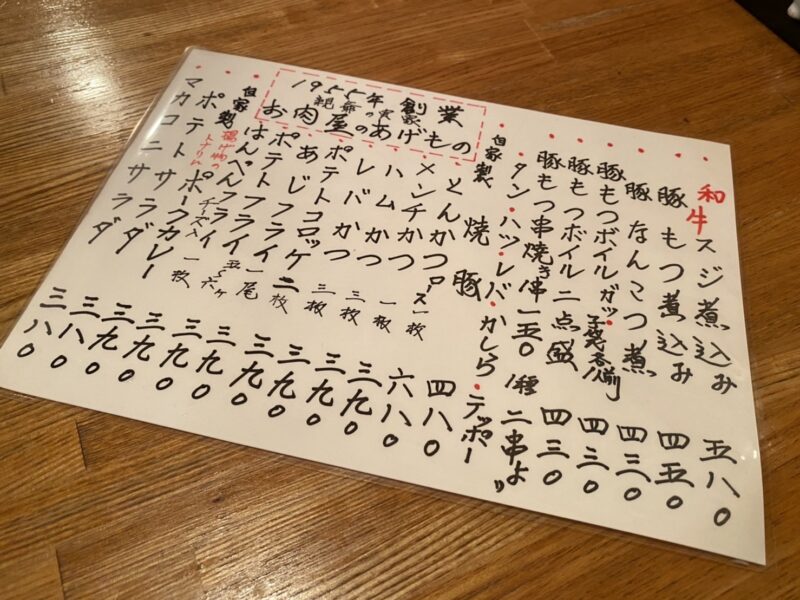 和牛スジ煮込み 五八〇
豚もつ煮込み 四五〇
豚なんこつ煮 四三〇
豚もつボイルガツ・子袋各1人前 四三〇
豚もつボイル二点盛 四三〇
豚もつ串焼き1串一五〇 1種二串より
タン・ハツ・レバ・かしら・テッポー
自家製 焼豚 四八〇
1955年創業
親爺の実家
お肉屋のあげもの
とんかつロース一枚 六八〇
メンチかつ 一枚 三九〇
ハムかつ 一枚 三九〇
レバかつ 三枚 三九〇
ポテトコロッケ 二枚 三九〇
あじフライ 一尾 三九〇
ポテトフライ 五〜六ヶ 三九〇
はんぺんフライ チーズ入 一枚 三九〇
自家製 揚げ物のトナリに ポークカレー
ポテトサラダ 三八〇
マカロニサラダ 三八〇